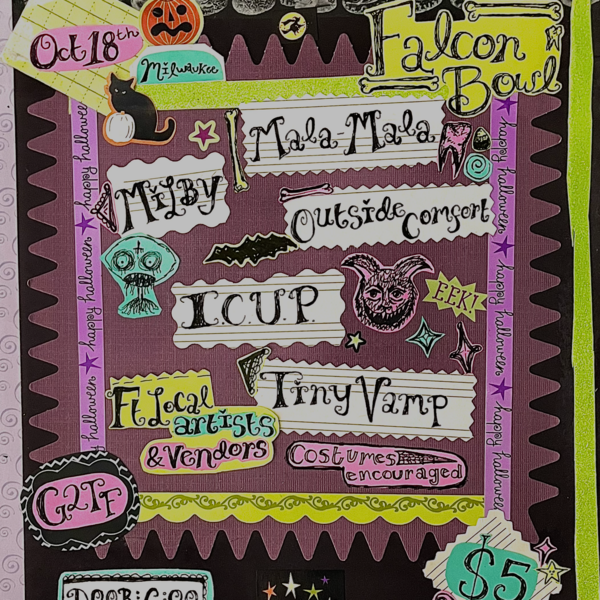 Oct 18th
Milwaukee
Falcon
Bowl
Mala-Mala
MiLBY
Outside Comfort
I.C.U.P
EEK!
Tiny Vamp
Ft Local
artists
& Vendors
Costumes
encouraged
G2TF
$5
happy halloween ★ happy halloween ★ happy halloween
happy halloween ★ happy halloween ★ happy halloween ★ happy halloween